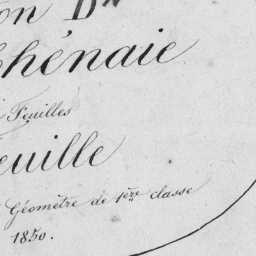 on Dn
chénaie
Feuilles
euille
Géomètre de 1ère classe
1850.